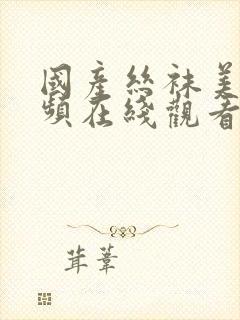 國產絲袜美
頻在綫觀看
茸葦